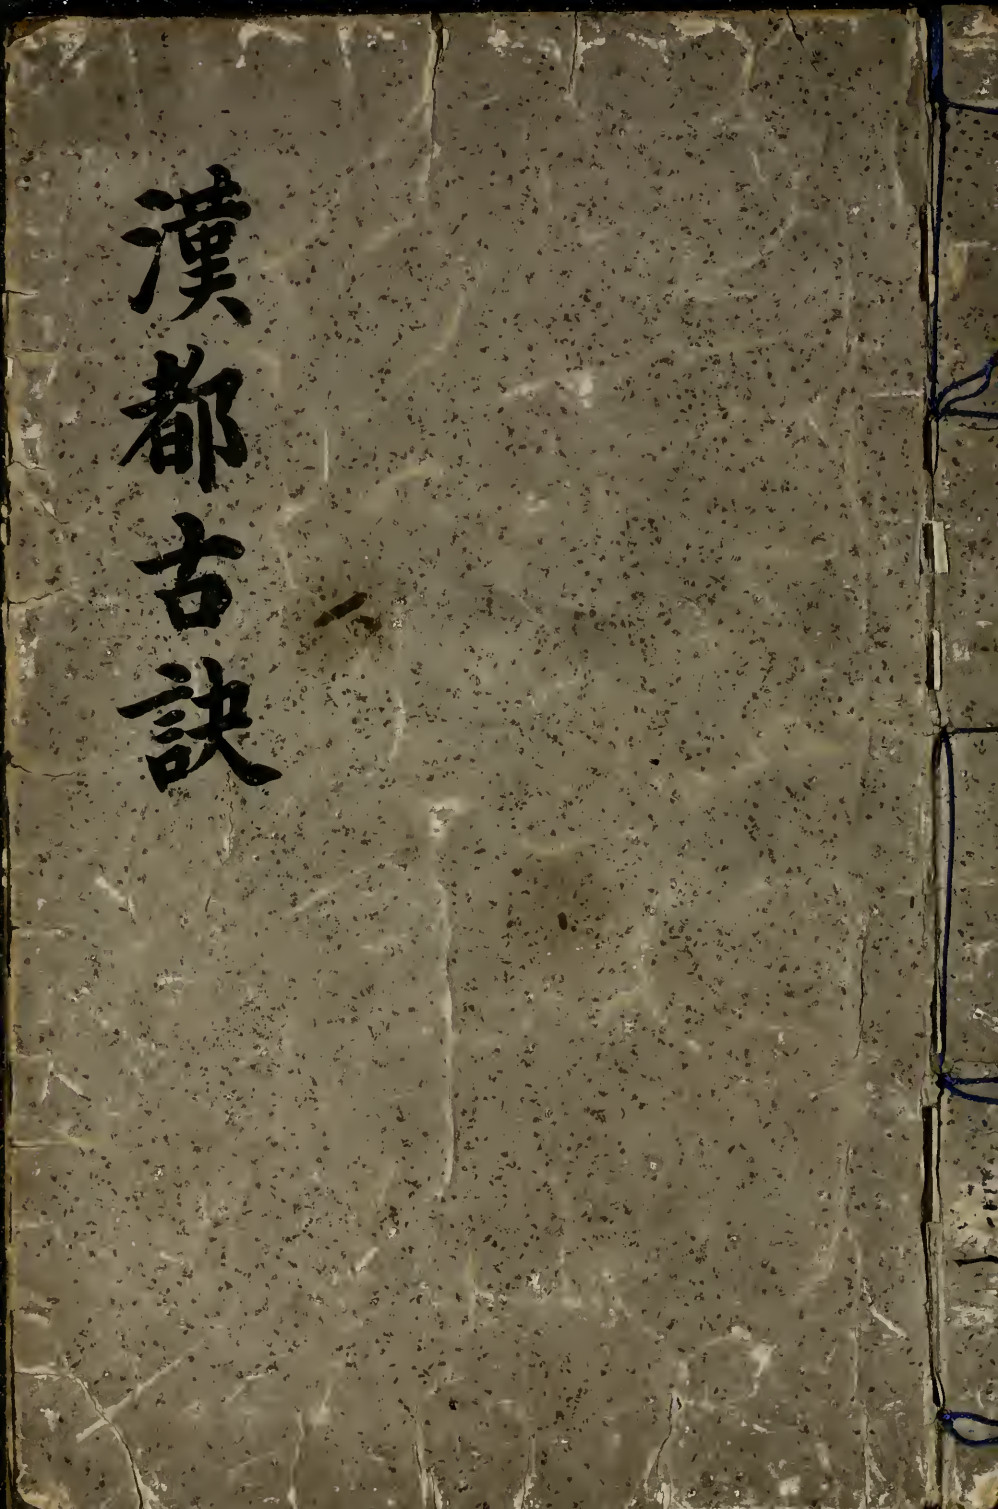 漢都古訣